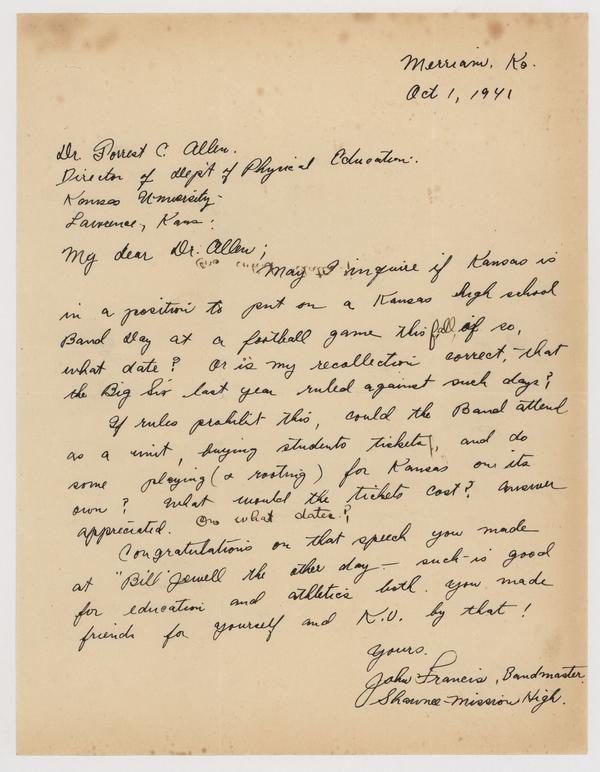 Merriam, Ks.
Oct 1, 1941
Dr. Forrest C. Allen.
Director of dep't of Physical Education.
Kansas University
Lawrence, Kans.
My dear Dr. Allen;
May I inquire if Kansas is
in a position to put on a Kansas high school
Band day at a football game this fall, if so,
what date? Or is my recollection correct, that
the Big Six last year ruled against such days?
If rules prohibit this, could the Band attend
as a unit, buying students tickets, and do
some playing (& rooting) for Kansas on its
own? What would the tickets cost? Answer
appreciated. On what dates?
Congratulations on that speech you made
at "Bill" Jewell the other day - such is good
for education and athletics both. You made
friends for yourself and K.U. by that!
Yours.
John Francis, Bandmaster
Shawnee-Mission High.